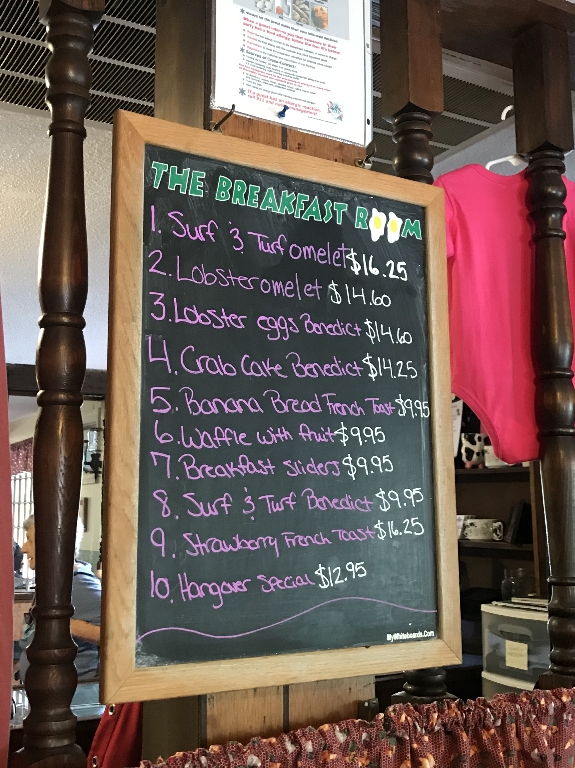 THE BREAKFAST ROOM
1. Surf & Turf omelet $16.25
2. Lobster omelet $14.60
3. Lobster eggs Benedict $14.60
4. Crab Cake Benedict $14.25
5. Banana Bread French Toast $9.95
6. Waffle with fruit $9.95
7. Breakfast sliders $9.95
8. Surf & Turf Benedict $9.95
9. Strawberry French Toast $16.25
10. Hangover Special $12.95
MyWhiteboards.Com